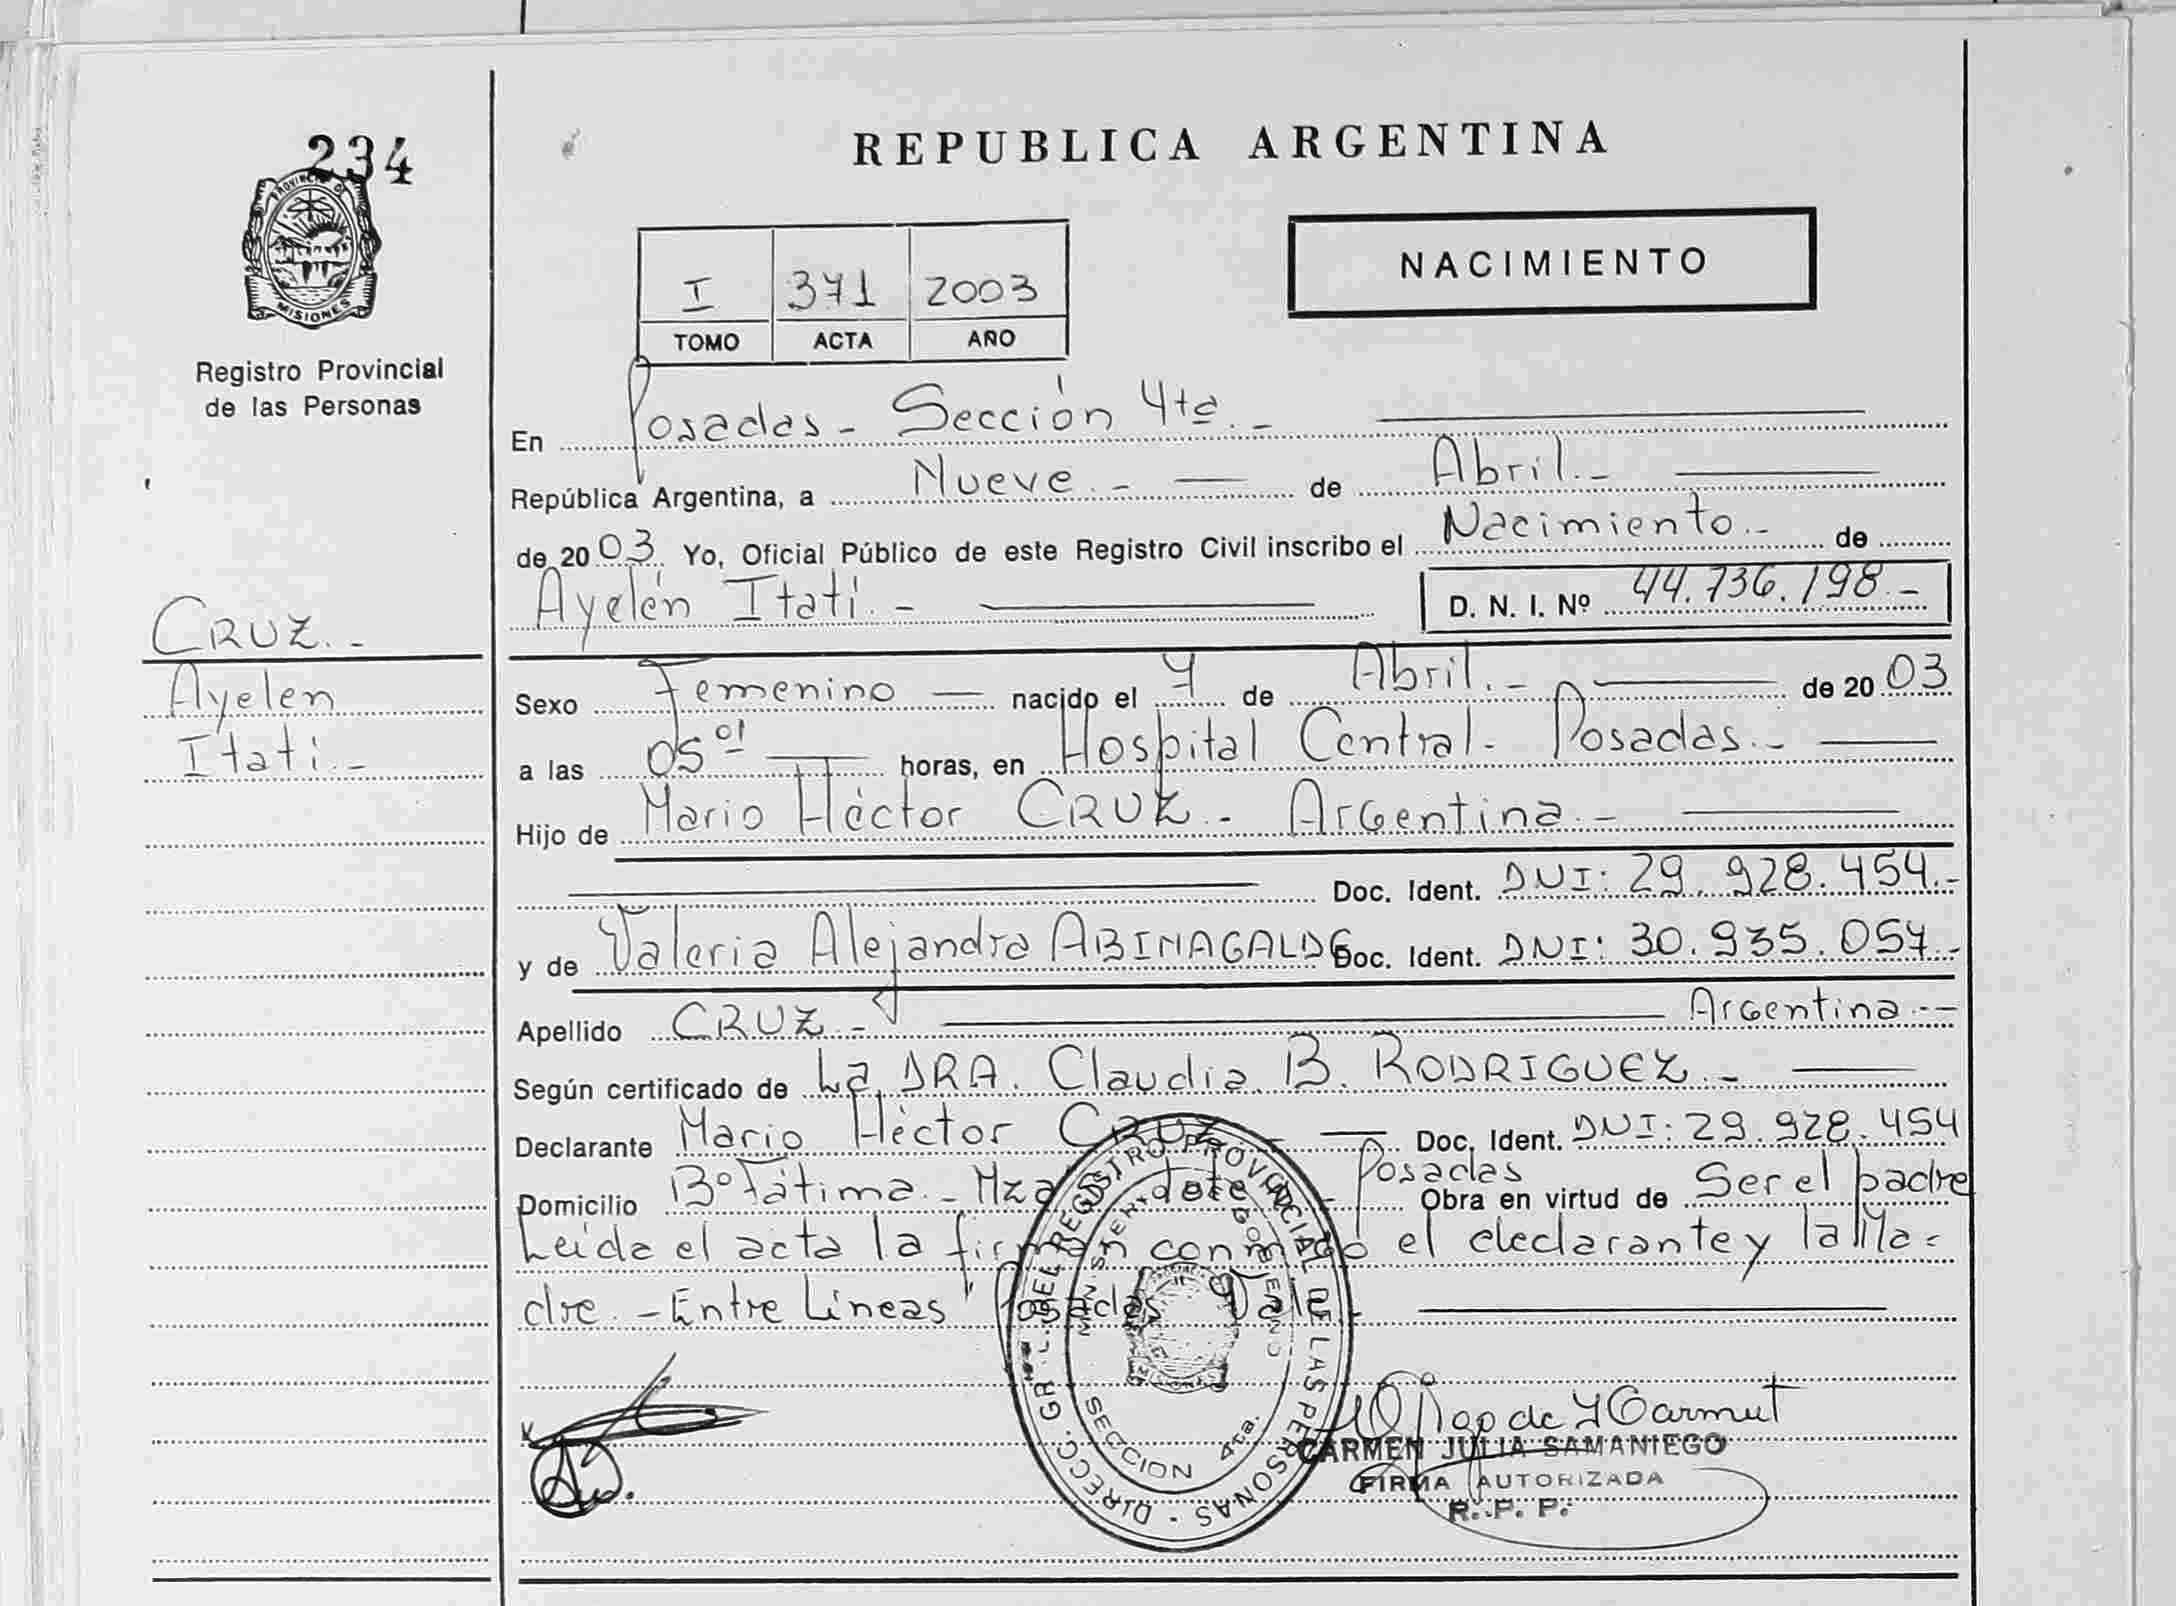 234
PROVINCIA DE
MISIONES
Registro Provincial
de las Personas
CRUZ.-
Ayelen
Itatí.-
REPUBLICA ARGENTINA
I 371 2003
TOMO ACTA AÑO
NACIMIENTO
En Posadas - Sección 4ta.-
República Argentina, a Nueve.- de Abril.-
de 2003 Yo, Oficial Público de este Registro Civil inscribo el Nacimiento.- de
Ayelén Itatí.- D. N. I. Nº 44.736.198.-
Sexo Femenino nacido el 7 de Abril.- de 2003
a las 05 01 horas, en Hospital Central - Posadas.-
Hijo de Mario Héctor CRUZ - Argentina.-
Doc. Ident. DNI: 29.928.454.-
y de Valeria Alejandra ABINAGALDE Doc. Ident. DNI: 30.935.057.-
Apellido CRUZ.- Argentina.-
Según certificado de La DRA. Claudia B. RODRIGUEZ.-
Declarante Mario Héctor CRUZ.- Doc. Ident. DNI: 29.928.454
Domicilio Bº Fátima.- Mza Posadas Obra en virtud de Ser el padre
Leída el acta la firman conmigo el declarante y la Ma-
dre.- Entre Líneas "Posadas" Vale.-
DIRECC. GRL. DEL REGISTRO PROVINCIAL DE LAS PERSONAS
MINISTERIO DE GOBIERNO
SECCION 4ta.
CARMEN JULIA SAMANIEGO
FIRMA AUTORIZADA
R. P. P.